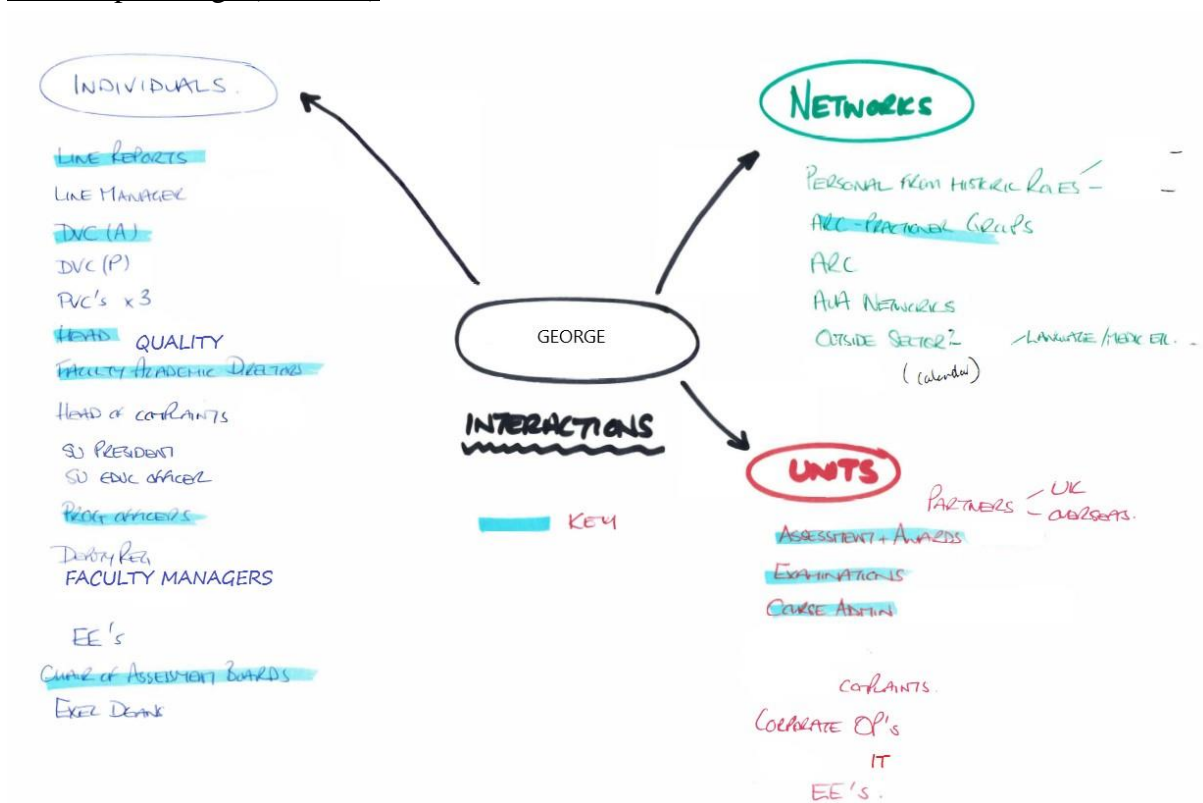 INDIVIDUALS.
LINE REPORTS
LINE MANAGER
DVC (A)
DVC (P)
PVC's x 3
HEAD QUALITY
FACULTY ACADEMIC DIRECTORS
HEAD OF COMPLAINTS
SU PRESIDENT
SU EDUC OFFICER
PROG OFFICERS
DEPUTY REG
FACULTY MANAGERS
EE's
CHAIR OF ASSESSMENT BOARDS
EXEC DEANS
GEORGE
INTERACTIONS
KEY
NETWORKS
PERSONAL FROM HISTORIC ROLES
ARC-PRACTIONER GROUPS
ARC
AUA NETWORKS
OUTSIDE SECTOR? LANGUAGE/MEDIC ETC.
(calendar)
UNITS
PARTNERS - UK
- OVERSEAS.
ASSESSMENT + AWARDS
EXAMINATIONS
COURSE ADMIN
COMPLAINTS.
CORPORATE OP's
IT
EE's.